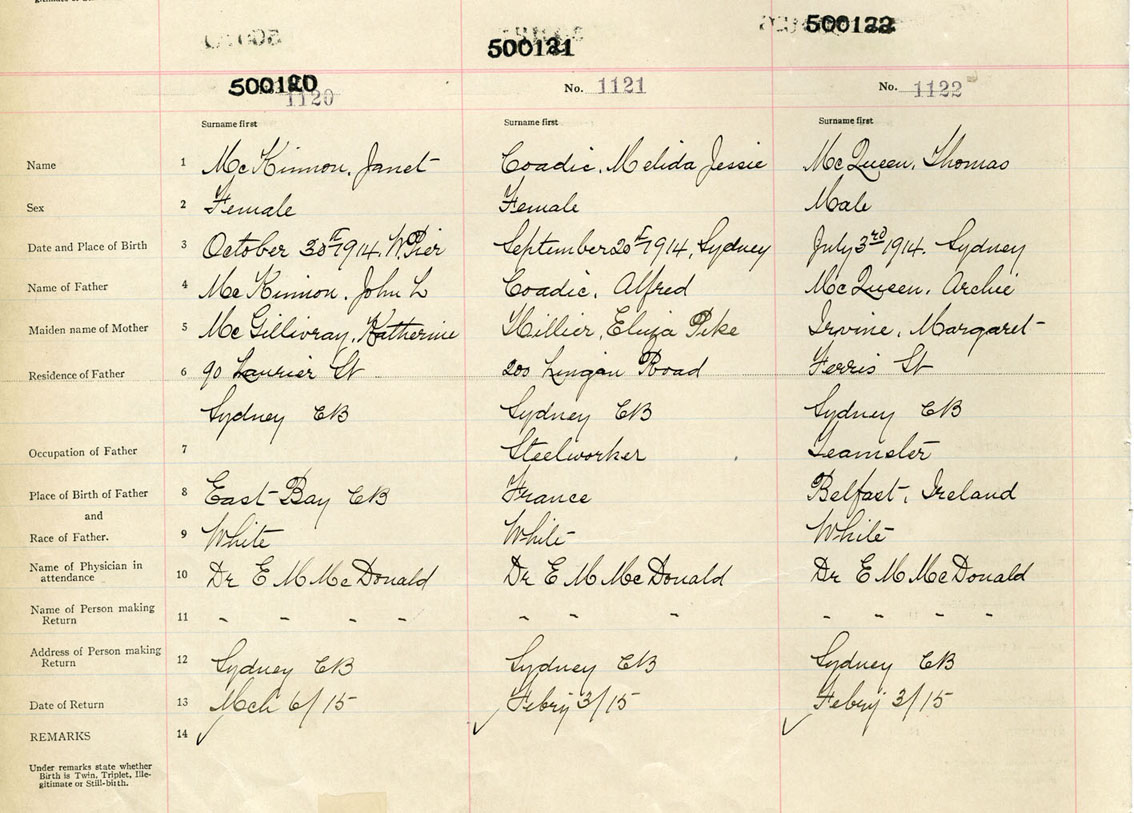 500121
500122
500120
1120
No. 1121
No. 1122
Surname first Surname first Surname first
Name 1 McKinnon, Janet Coadic, Melida Jessie McQueen, Thomas
Sex 2 Female Female Male
Date and Place of Birth 3 October 1914, W. Pier September 1914, Sydney July 3rd 1914. Sydney
Name of Father 4 McKinnon, John L Coadic, Alfred McQueen, Archie
Maiden name of Mother 5 McGillivray, Katherine Hillier, Eliza Pike Irvine, Margaret
Residence of Father 6 90 Laurier St 200 Lingan Road Ferris St
Sydney CB Sydney CB Sydney CB
Occupation of Father 7 Steelworker Teamster
Place of Birth of Father 8 East Bay CB France Belfast, Ireland
and
Race of Father. 9 White White White
Name of Physician in
attendance 10 Dr E M McDonald Dr E M McDonald Dr E M McDonald
Name of Person making
Return 11 - - - - - - - - - - -
Address of Person making
Return 12 Sydney CB Sydney CB Sydney CB
Date of Return 13 Mch 6/15 Febry 3/15 Febry 3/15
REMARKS 14
Under remarks state whether
Birth is Twin, Triplet, Ille-
gitimate or Still-birth.